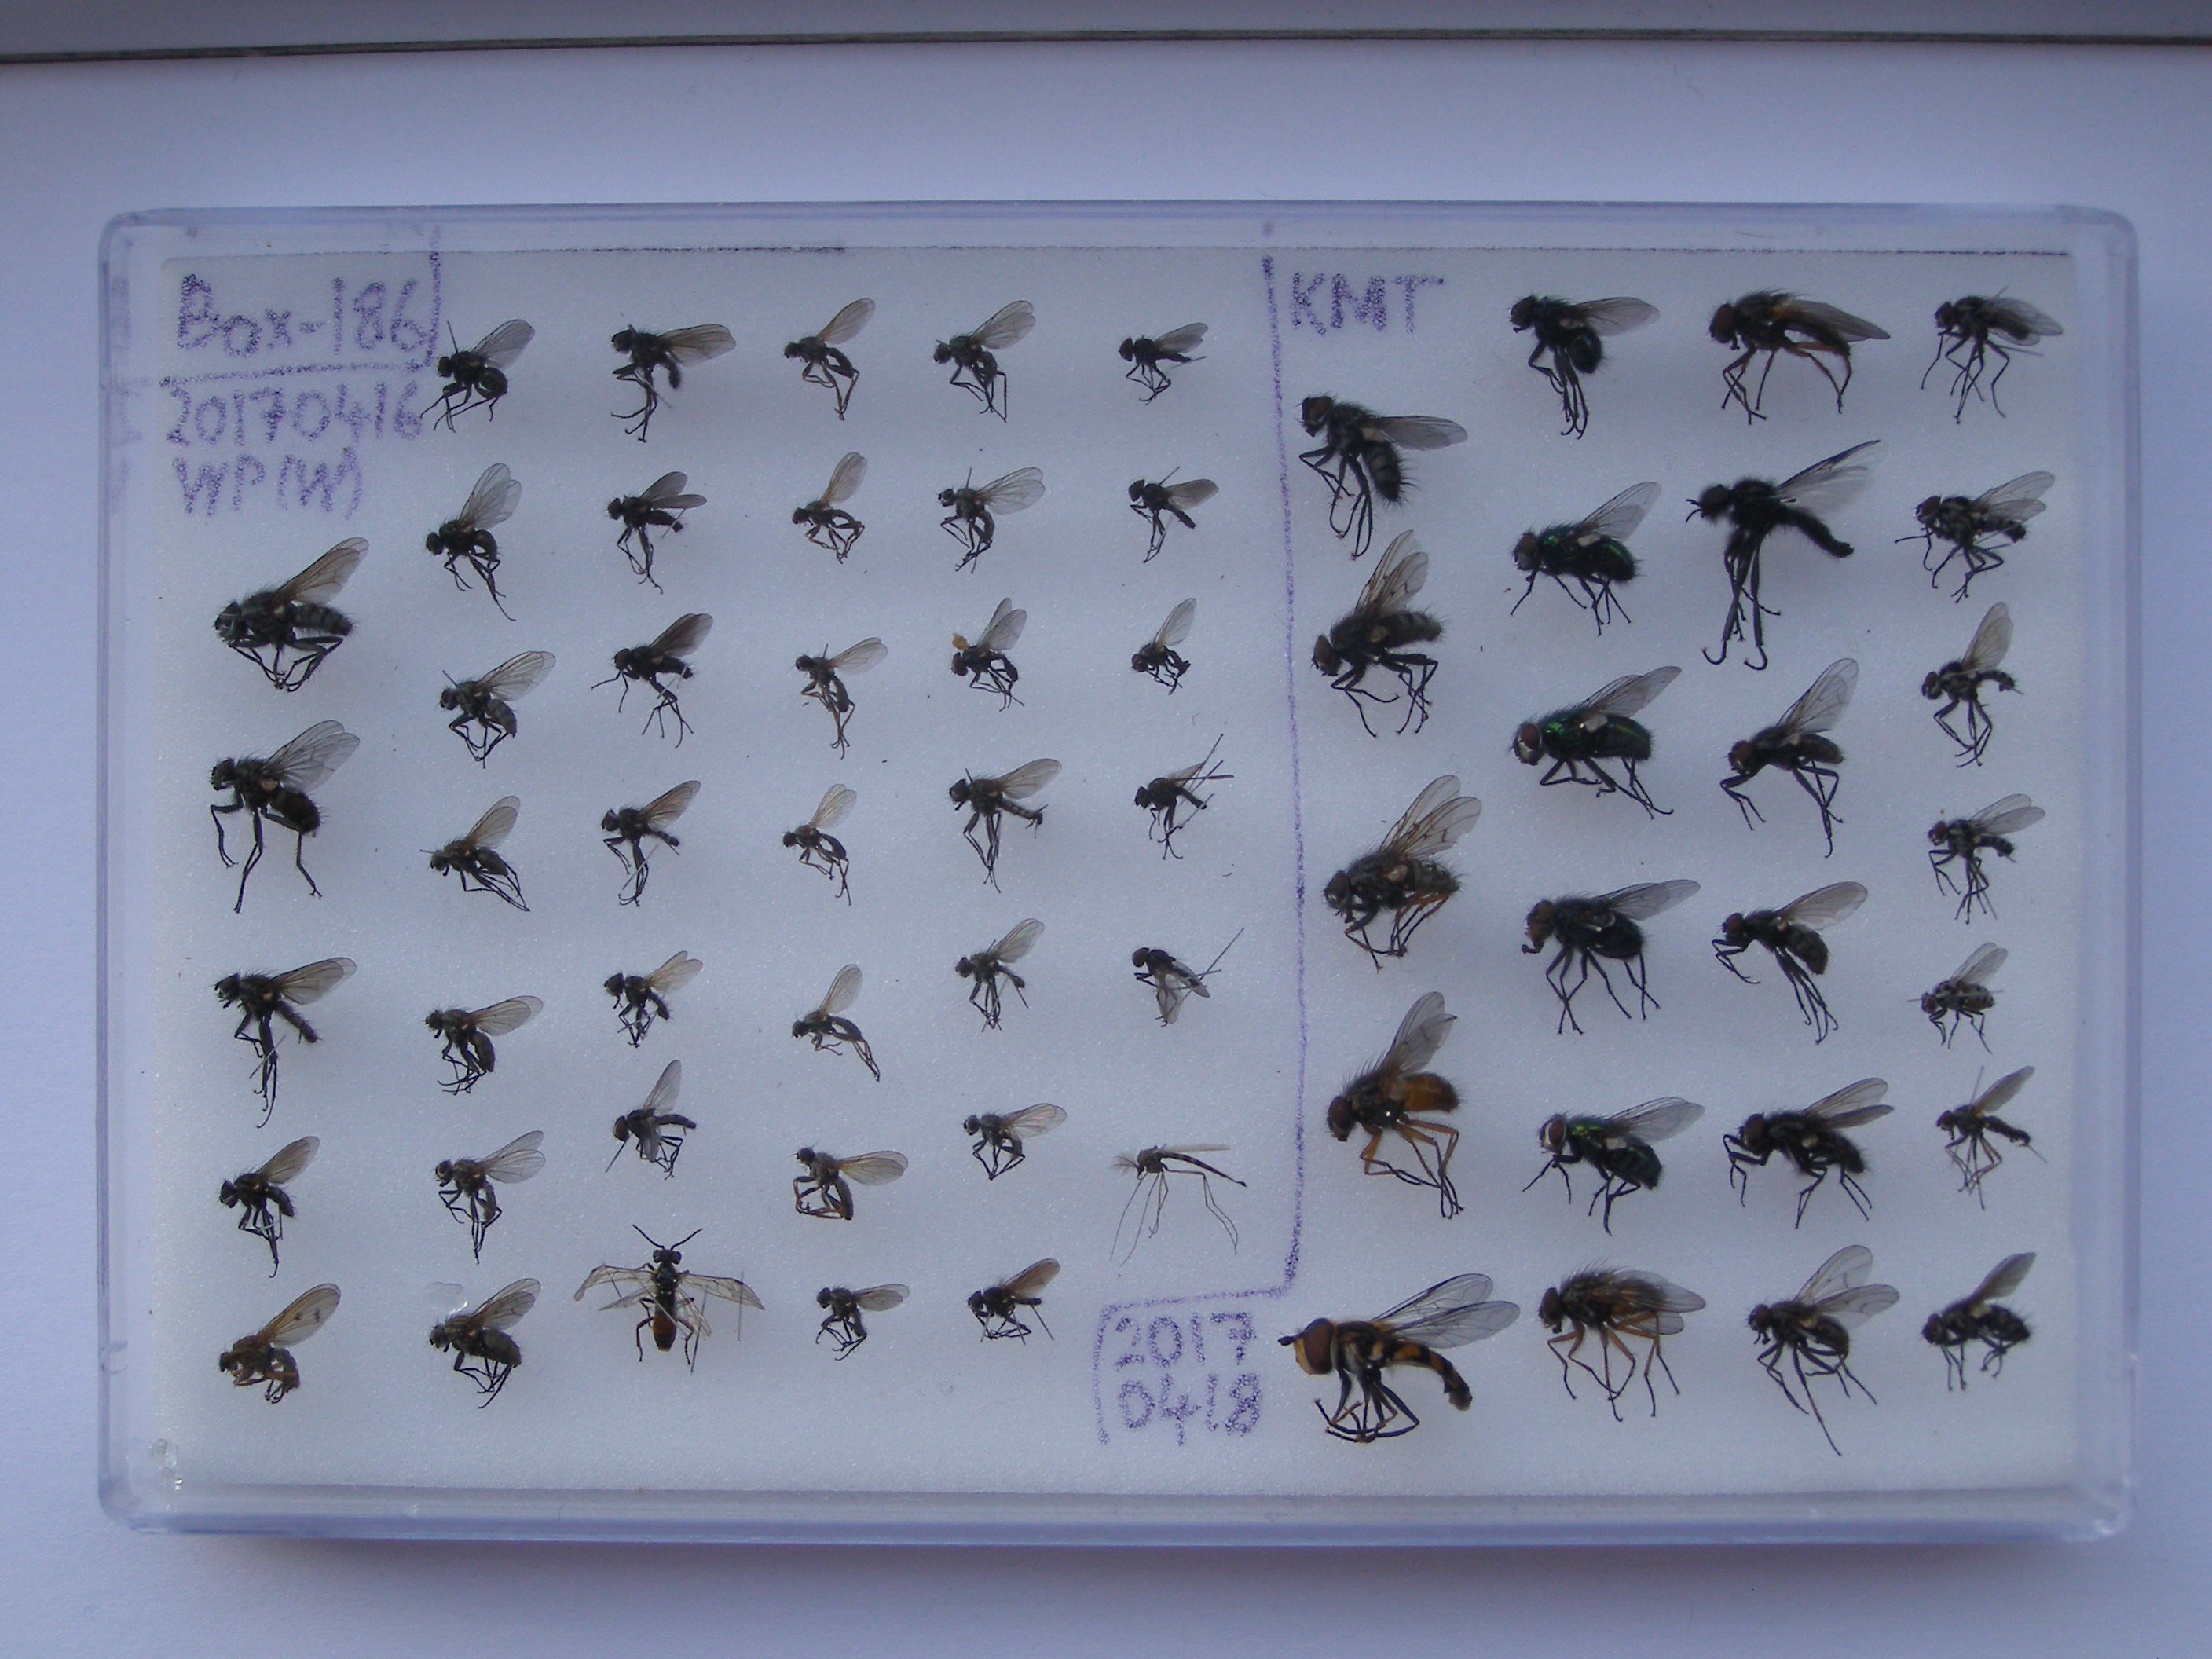 Box-186
20170416
WP(W)
KMT
2017
0418